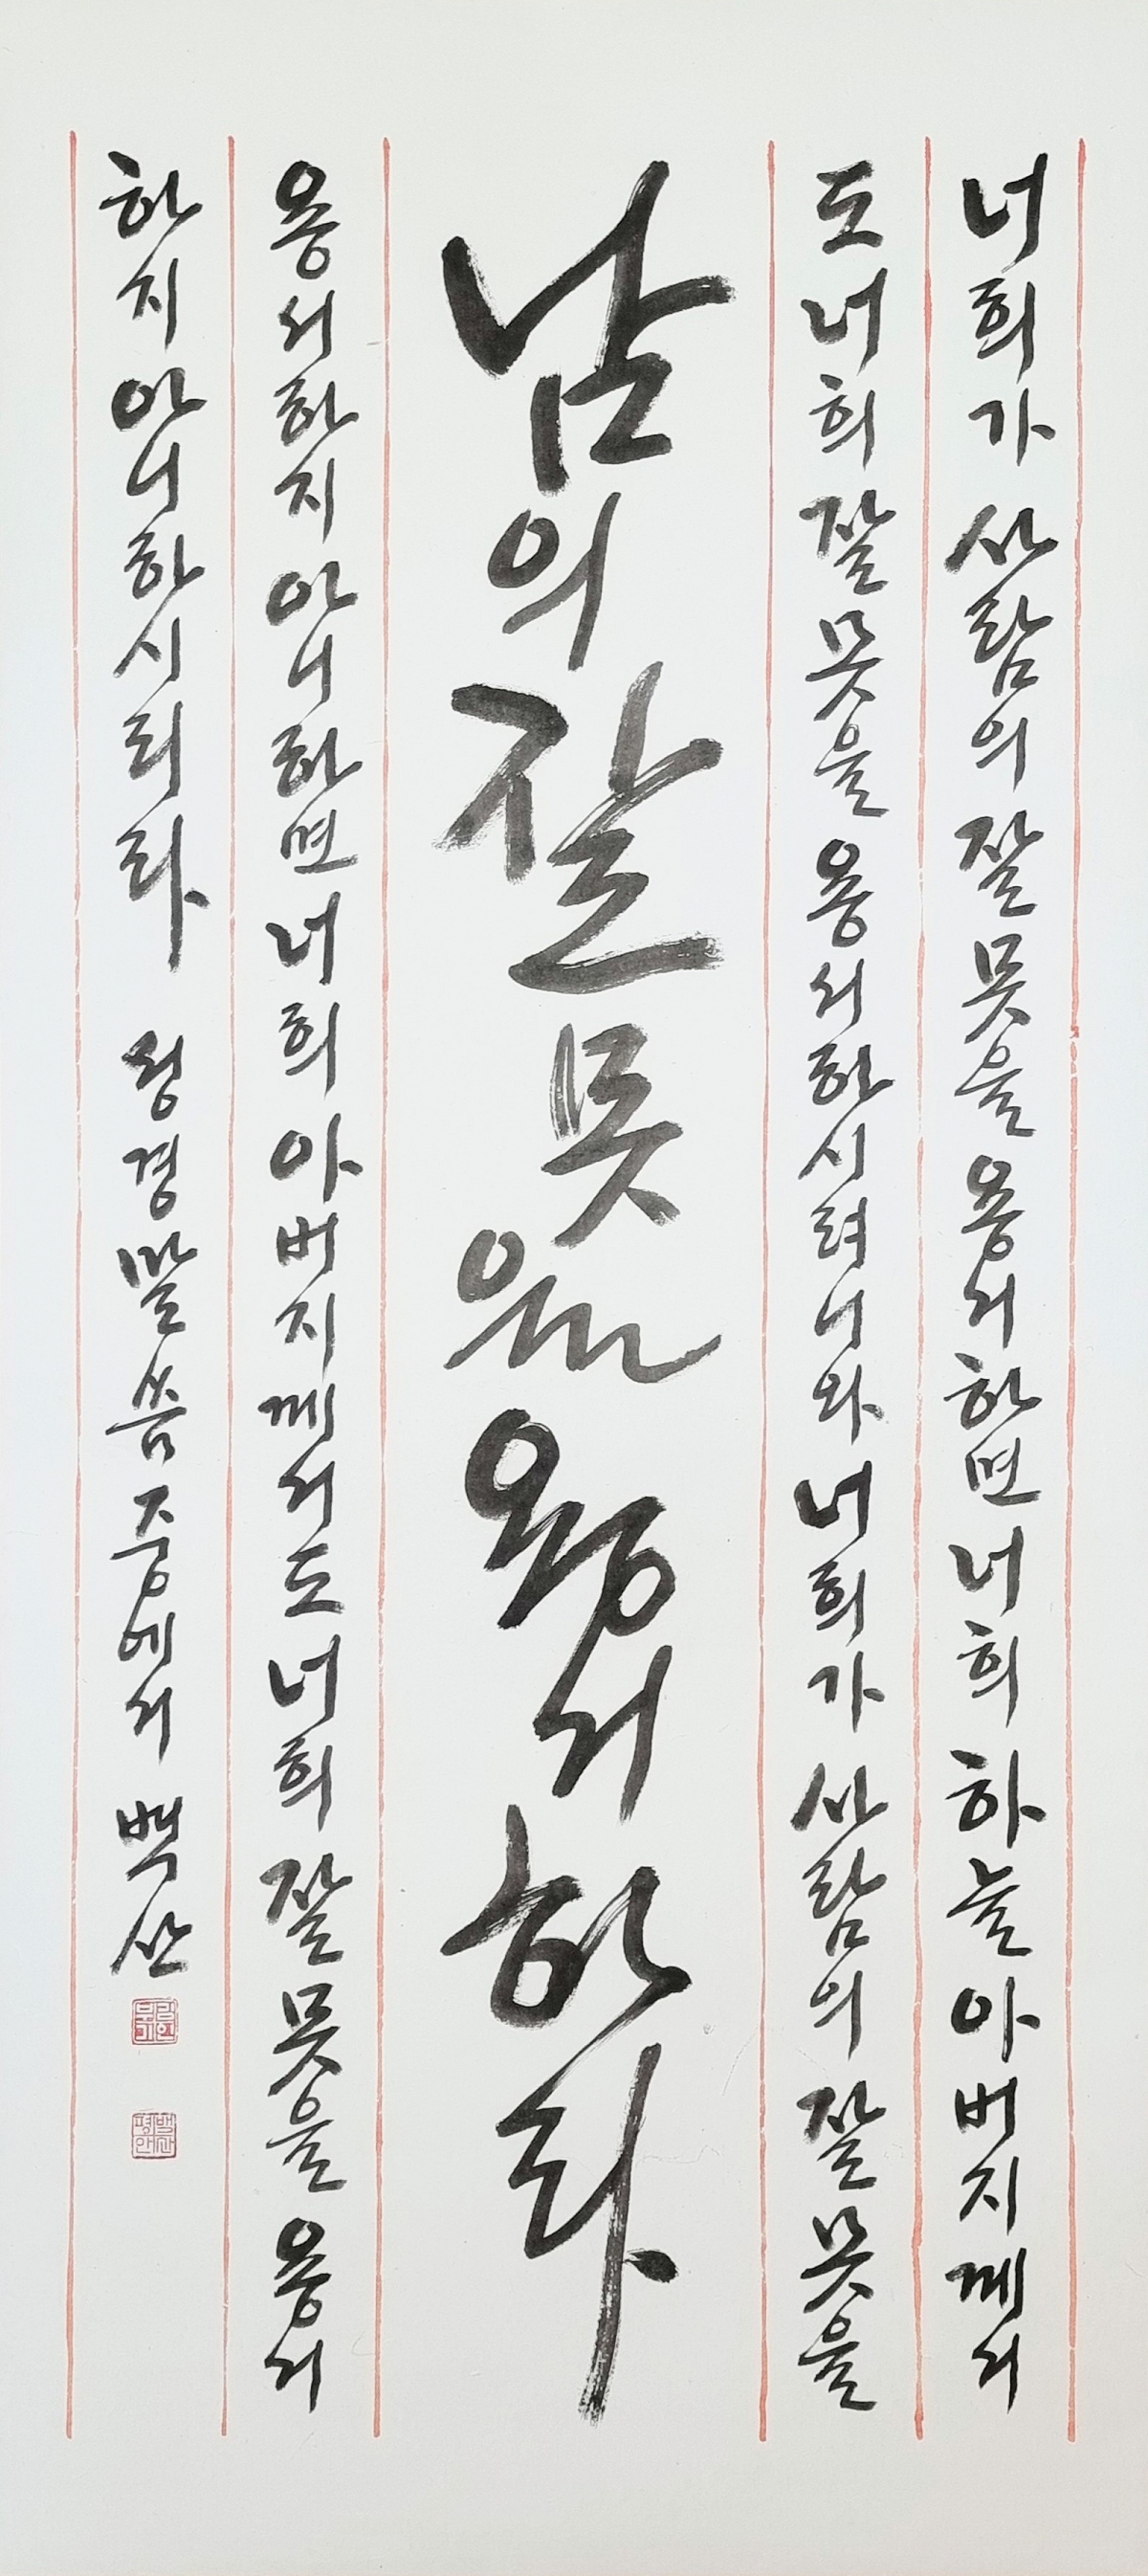 너희가 사람의 잘못을 용서하면 너희 하늘 아버지께서
도 너희 잘못을 용서하시려니와 너희가 사람의 잘못을
남의 잘못을 용서하라
용서하지 아니하면 너희 아버지께서도 너희 잘못을 용서
하지 아니하시리라 성경말씀 중에서 백산